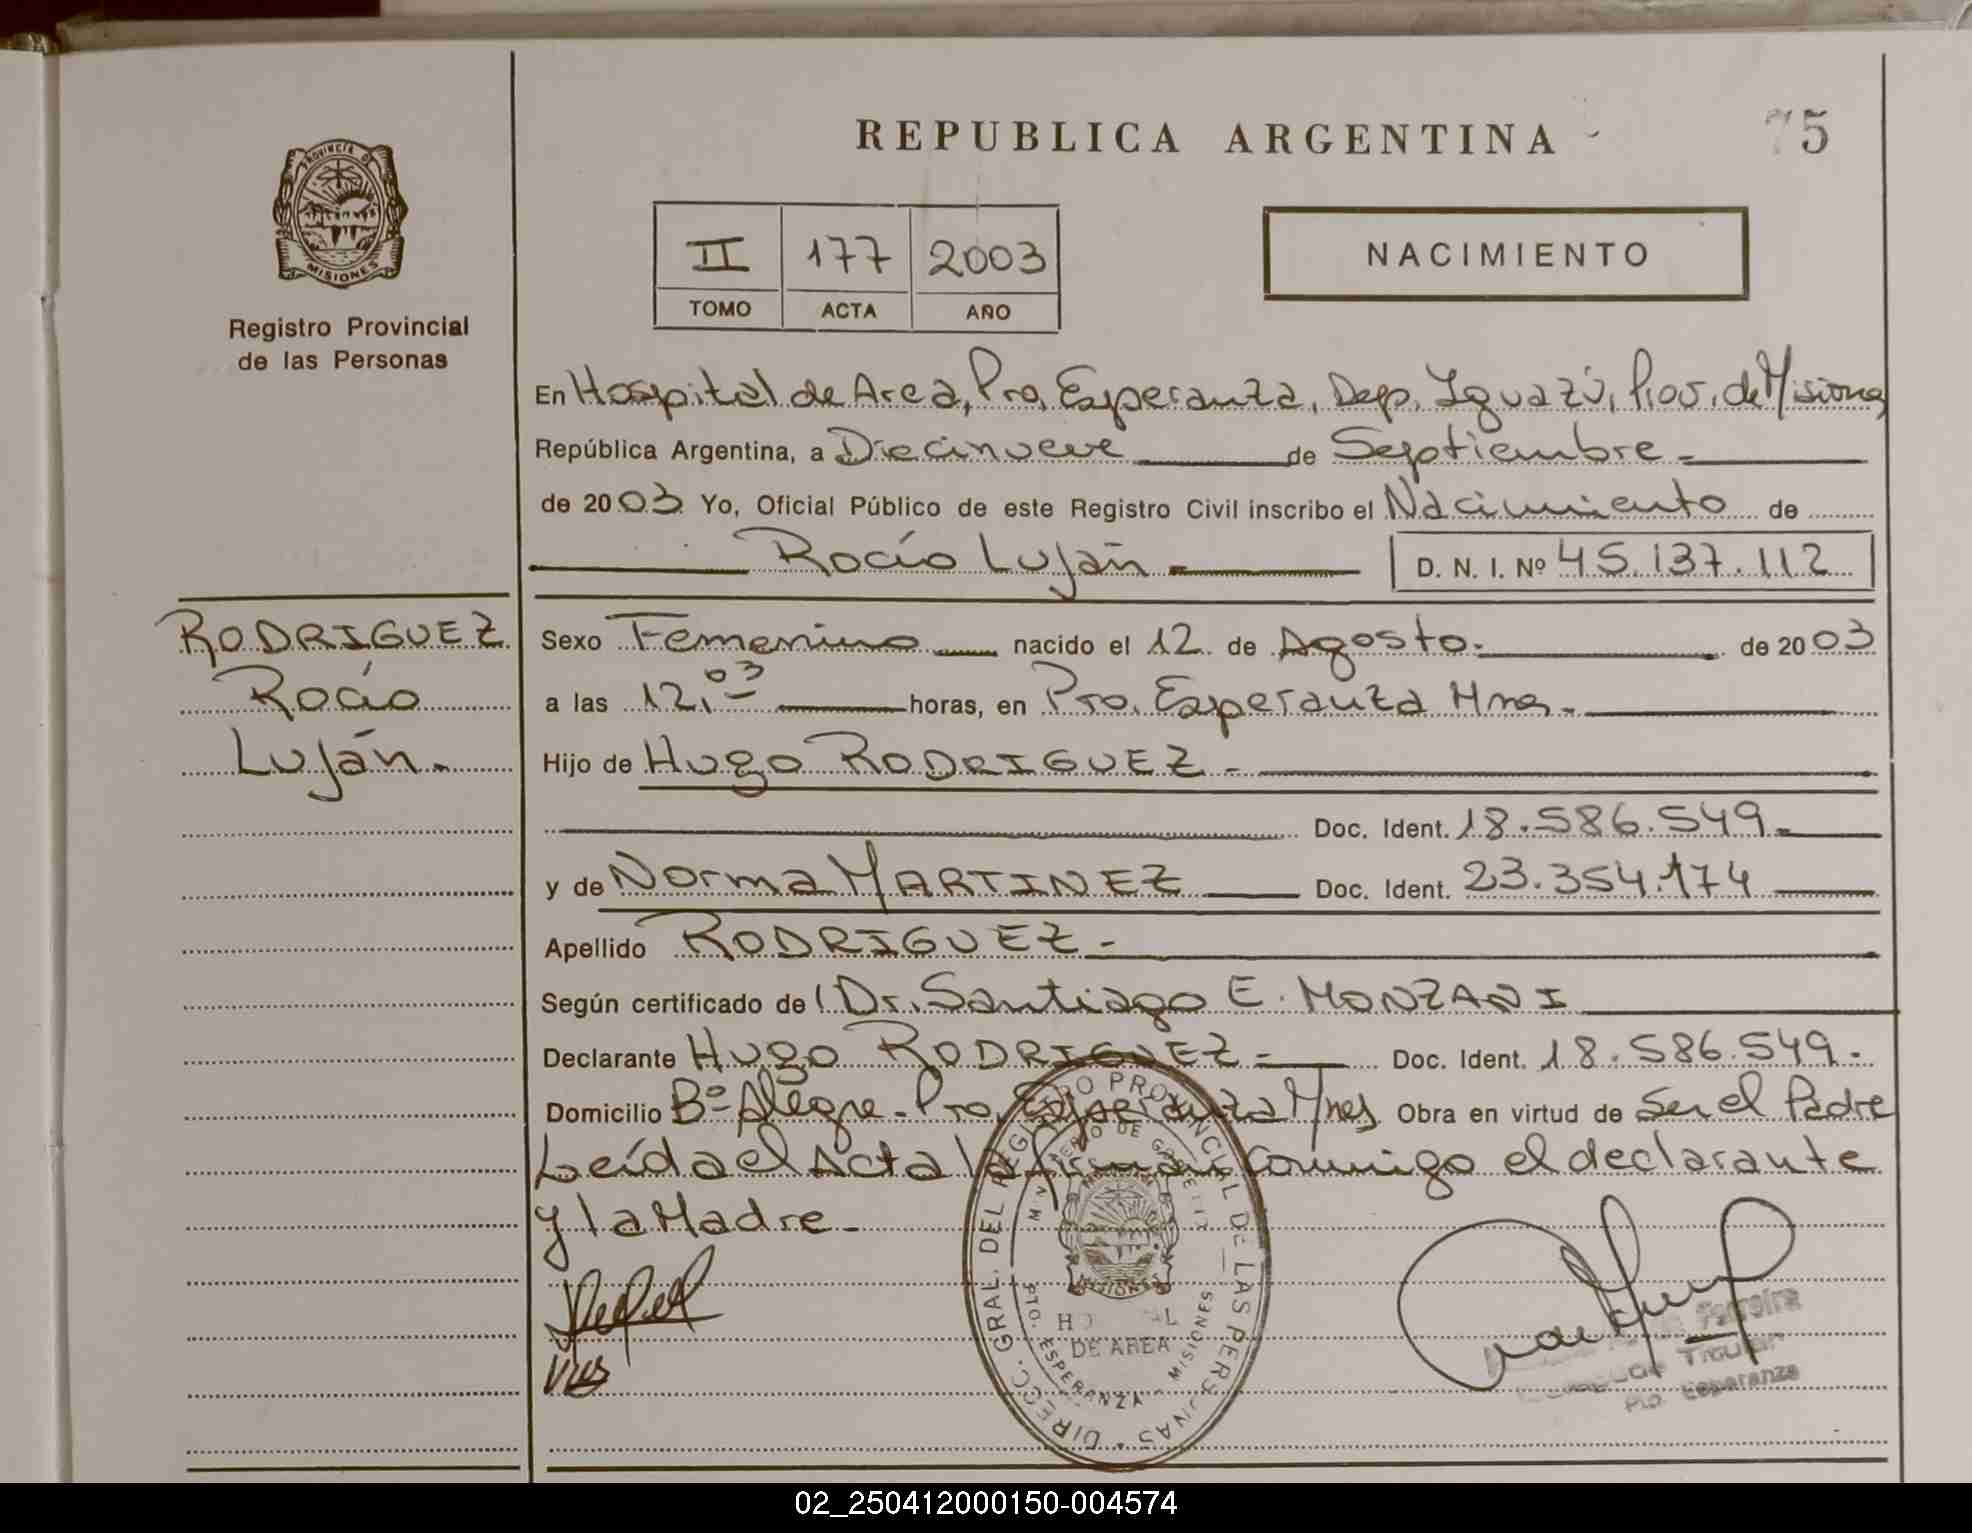 REPUBLICA ARGENTINA
75
PROVINCIA DE
MISIONES
Registro Provincial
de las Personas
II 177 2003
TOMO ACTA AÑO
NACIMIENTO
En Hospital de Area, Pto. Esperanza, Dep. Iguazú, Prov. de Misiones
República Argentina, a Diecinueve de Septiembre.
de 2003 Yo, Oficial Público de este Registro Civil inscribo el Nacimiento de
Rocío Luján
D. N. I. Nº 45.137.112
RODRIGUEZ
Rocío
Luján.
Sexo Femenino nacido el 12 de Agosto. de 2003
a las 12,03 horas, en Pto. Esperanza Mnes.
Hijo de Hugo RODRIGUEZ -
Doc. Ident. 18.586.549
y de Norma MARTINEZ Doc. Ident. 23.354.174
Apellido RODRIGUEZ -
Según certificado de Dr. Santiago E. MONZANI
Declarante Hugo RODRIGUEZ - Doc. Ident. 18.586.549.
Domicilio Bº Alegre - Pto. Esperanza Mnes Obra en virtud de Ser el Padre
Leída el Acta la firman Conmigo el declarante
y la Madre -
DIRECC. GRAL. DEL REGISTRO PROVINCIAL DE LAS PERSONAS
MISIONES
DE AREA
PTO. ESPERANZA - MISIONES
Ferreira
Titular
Pto. Esperanza
02_250412000150-004574